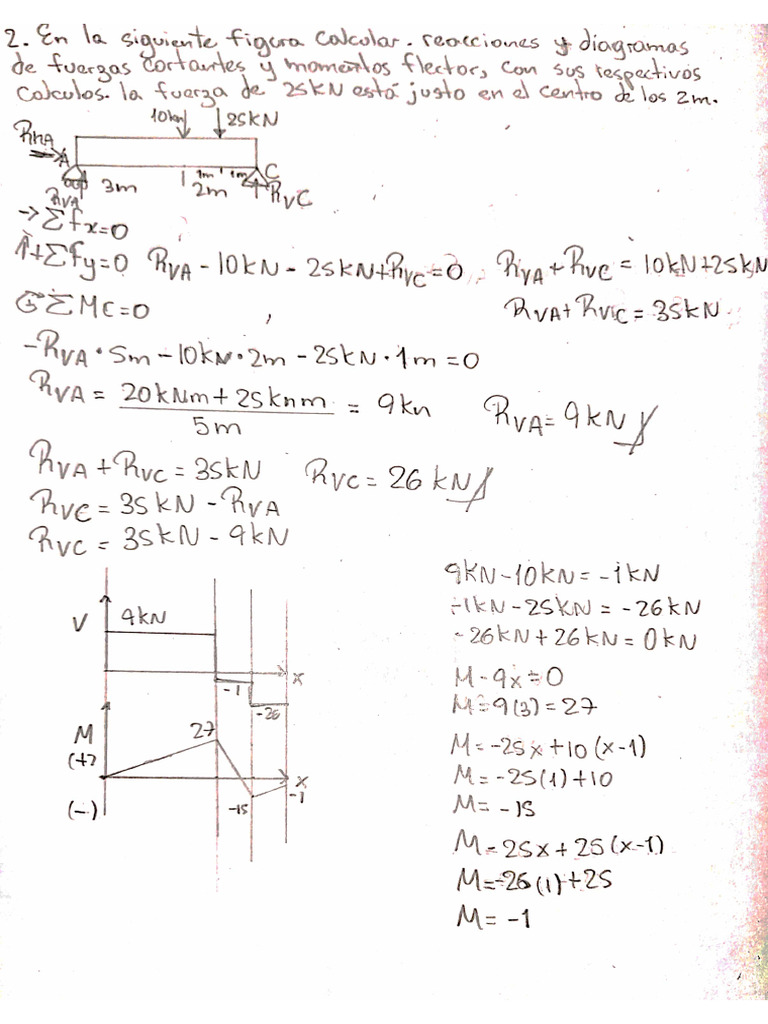 2. En la siguiente figura calcular. reacciones y diagramas
de fuerzas cortantes y momentos flector, con sus respectivos
calculos. la fuerza de 25kN está justo en el centro de los 2m.
10kN 25KN
RHA
A 1m 1m C
3m 2m RVC
RVA
→ΣFx=0
↑+ΣFy=0 RVA - 10KN - 25KN+RVC=0 RVA + RVC = 10KN+25KN
ΣMC=0 RVA+RVC=35KN
-RVA • 5m - 10KN • 2m - 25KN • 1m = 0
RVA = 20kNm + 25knm = 9kn RVA=9KN
5m
RVA + RVC = 35KN RVC = 26 KN
RVC = 35KN - RVA
RVC = 35KN - 9KN
9KN-10KN = -1KN
-1KN-25KN = -26KN
-26KN+26KN = 0KN
V 9KN
-1 x
-26
M - 9x = 0
M = 9(3) = 27
M 27
(+)
M = -25x+10(x-1)
M = -25(1)+10
M = -15
x
-1
-15
(-)
M = 25x + 25(x-1)
M = -26(1)+25
M = -1